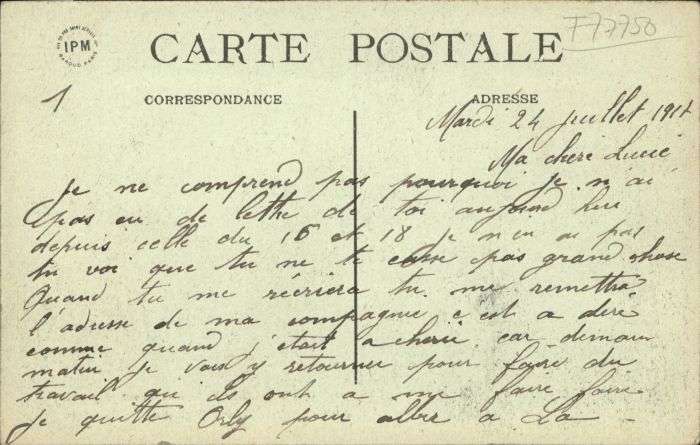 IPM
CARTE POSTALE
F77750
1
CORRESPONDANCE
ADRESSE
Mardi 24 juillet 191
Ma cheri Lucie
Je ne comprend pas pourquoi je n'ai
pas eu de lettre de toi aujourd hui
depuis celle du 16 et 18 je n en ai pas
tu voi que tu ne te casse pas grand chose
Quand tu me récrira tu me remettra
l'adresse de ma compagnie c'est a dire
comme quand j'etait a car demain
matin je vais y retourner pour faire du
travail qu ils ont a me faire faire
je quitte Orly pour aller a La